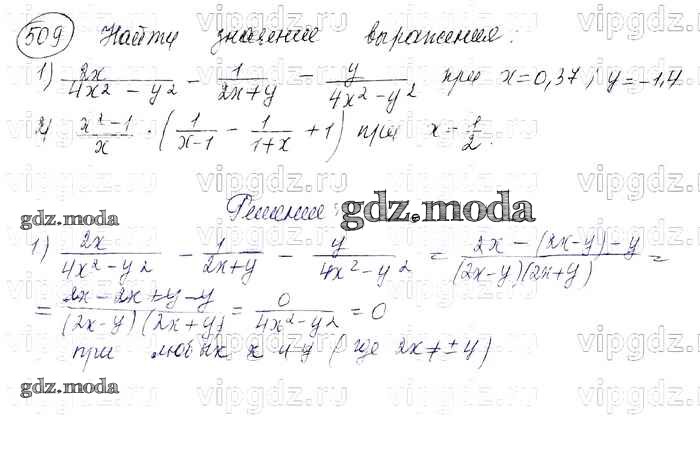 509 Найти значение выражения:
1) 2x/(4x² - y²) - 1/(2x+y) - y/(4x²-y²) при x=0,37, y=-1,4
2) (x²-1)/x · (1/(x-1) - 1/(1+x) + 1) при x=-1/2.
Решение:
gdz.moda
gdz.moda
1) 2x/(4x²-y²) - 1/(2x+y) - y/(4x²-y²) = (2x-(2x-y)-y)/((2x-y)(2x+y)) =
= (2x-2x+y-y)/((2x-y)(2x+y)) = 0/(4x²-y²) = 0
при любых x и y (где 2x≠±y)
gdz.moda
vipgdz.ru